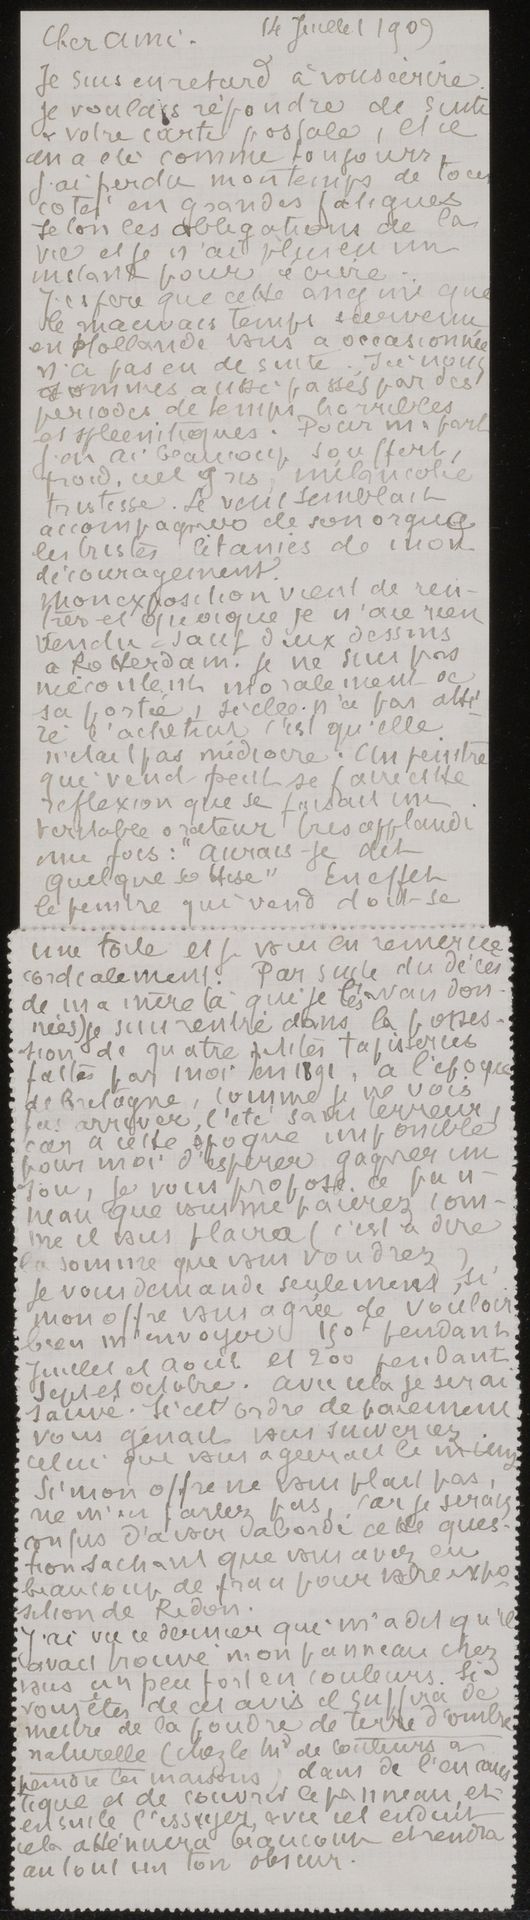 Cher ami. 14 Juillet 1909
Je suis en retard à vous écrire.
Je voulais répondre de suite
à votre carte postale, et il
en a été comme toujours,
j'ai perdu mon temps de tous
cotés en grandes fatigues
selon les obligations de la
vie et je n'ai plus eu un
instant pour écrire.
J'espère que cette angine que
le mauvais temps survenu
en Hollande vous a occasionnée
n'a pas eu de suite. Ici nous
sommes aussi passés par des
periodes de temps horribles
et spleenitiques. Pour ma part
j'en ai beaucoup souffert,
froid, ciel gris, mélancolie
tristesse. Le vent semblait
accompagner de son orgue
les tristes litanies de mon
découragement.
Mon exposition vient de ren-
trer et quoique je n'aie rien
vendu sauf deux dessins
a Rotterdam. je ne suis pas
mécontent moralement de
sa portée, si elle n'a pas atti-
ré l'acheteur c'est qu'elle
n'etait pas médiocre. Un peintre
qui vend peut se faire cette
reflexion que se faisait un
veritable orateur tres applaudi
une fois: "aurais-je dit
quelque sottise" En effet
le peintre qui vend doit-se
une toile et je vous en remercie
cordialement. Par suite du décès
de ma mère (à qui je les avais don-
nées) je suis rentré dans la posses-
sion de quatre petites tapisseries
faites par moi en 1891, a l'epoque
de Bretagne, comme je ne vois
pas arriver l'été sans terreur,
car a cette époque impossible
pour moi d'espérer gagner un
sou, je vous propose ce pan-
neau que vous me paierez com-
me il vous plaira (c'est à dire
la somme que vous voudrez)
Je vous demande seulement, si
mon offre vous agrée de vouloir
bien m'envoyer 150f pendant
Juillet et Aout et 200 pendant
Sept et octobre. avec cela je serai
sauvé. Si cet ordre de paiement
vous gênait vous suivriez
celui que vous agréerait le mieux
Si mon offre ne vous plait pas,
ne m'en parlez pas, car je serais
confus d'avoir abordé cette ques-
tion sachant que vous avez eu
beaucoup de frais pour votre expo-
sition de Redon.
J'ai vu ce dernier qui m'a dit qu'il
avait trouvé mon panneau chez
vous un peu fort en couleurs. Si
vous êtes de cet avis il suffira de
mettre de la poudre de terre d'ombre
naturelle (chez le Md de couleurs à
peindre les maisons) dans de l'encaus
tique et de couvrir le panneau et
ensuite l'essuyer, avec cet enduit
cela atténuera beaucoup et rendra
au tout un ton obscur.